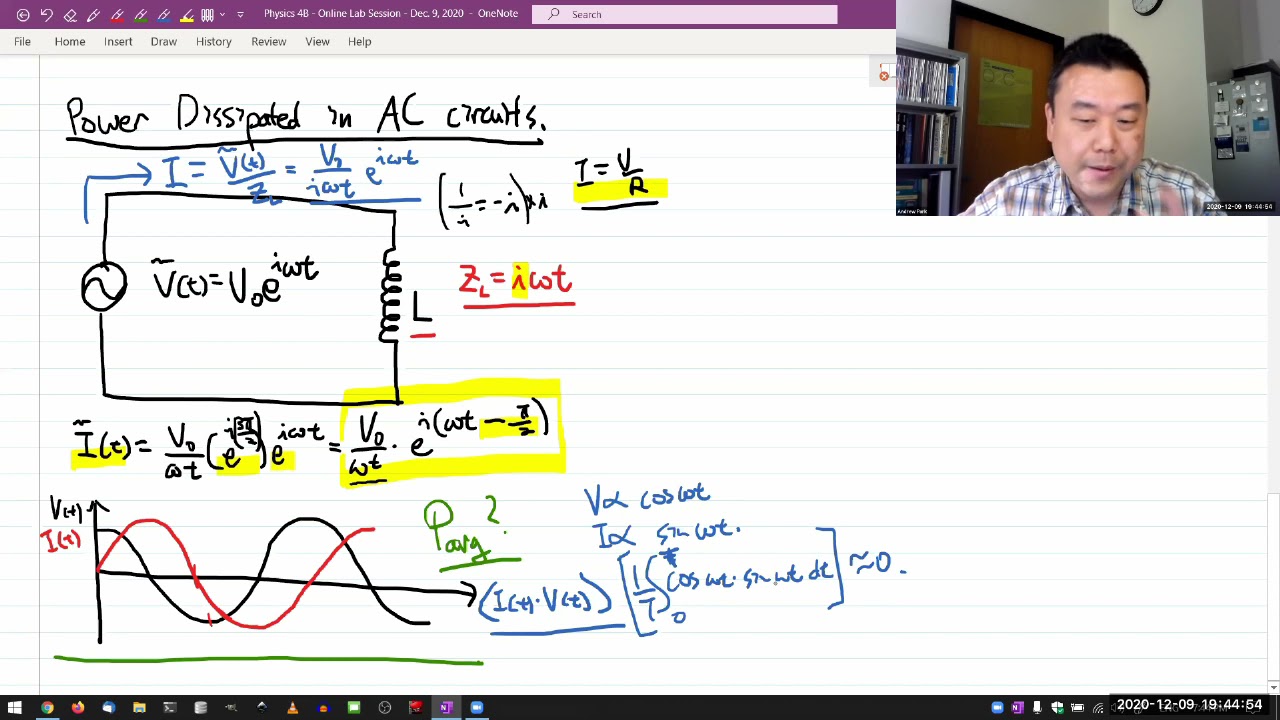 Physics 4B - Online Lab Session - Dec. 9, 2020 - OneNote
Search
File Home Insert Draw History Review View Help
Power Dissipated in AC circuits.
I = Ṽ(t)/Z_L = V₀/iωt e^{iωt}
(1/i = -i)×i
I = V/R
Ṽ(t) = V₀e^{iωt}
L
Z_L = iωt
Ĩ(t) = V₀/ωt (e^{i(3π/2)}) e^{iωt} = V₀/ωt · e^{i(ωt - π/2)}
V(t)
I(t)
P_avg?
V ∝ cos ωt
I ∝ sin ωt.
(I(t)·V(t)) [1/T ∫₀^T cos ωt · sin ωt dt] ≈ 0.
Andrew Park
2020-12-09 19:44:54
2020-12-09 19:44:54